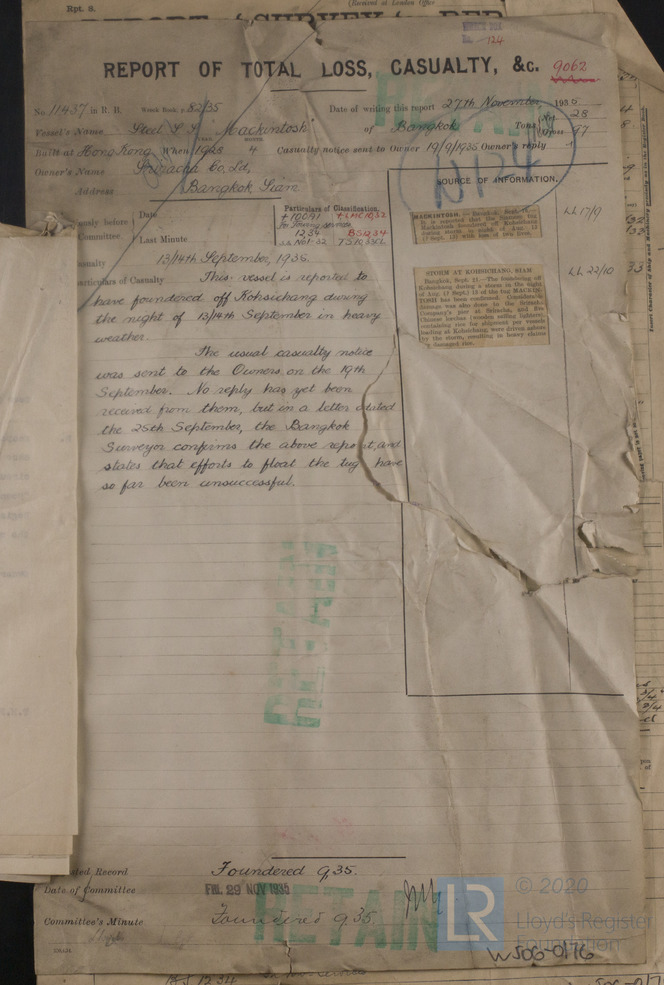 Rpt. 8.
(Received at London Office
124
REPORT OF TOTAL LOSS, CASUALTY, &c. 9062
No. 11437 in R. B. Wreck Book, p. 82/35 Date of writing this report 27th November, 1935.
Vessel's Name Steel S.S. "Mackintosh" of Bangkok Tons Net 28 Gross 77
Built at Hong Kong When 1928 4 Casualty notice sent to Owner 19/9/1935 Owner's reply
Owner's Name Sriracha Co. Ltd,
Address Bangkok Siam
RETAIN
W124
SOURCE OF INFORMATION.
Date
Committee
Last Minute
Particulars of Classification.
+100A1 +LMC 10,32
for Towing services
12,34 BS 12,34
SS No1-32 TS 10,33CL
MACKINTOSH.
LL 17/9
STORM AT KOHSICHANG, SIAM
Bangkok, Sept. 21.—The foundering off
Kohsichang during a storm in the night
of Aug. 13 (? Sept.) 13 of the tug MACKIN-
TOSH has been confirmed. Considerable
damage was also done to the Sriracha
Company's pier at Sriracha, and five
containing rice for shipment per vessels
loading at Kohsichang were driven ashore
by the storm, resulting in heavy claims
for damaged rice.
LL 22/10
13/14th September, 1935.
articulars of Casualty This vessel is reported to
have foundered off Kohsichang during
the night of 13/14th September in heavy
weather.
The usual casualty notice
was sent to the Owners on the 19th
September. No reply has yet been
received from them, but in a letter dated
the 25th September, the Bangkok
Surveyor confirms the above report, and
states that efforts to float the tug have
so far been unsuccessful.
RETAIN
Record Foundered 9,35.
Date of Committee FRI. 29 NOV 1935
Committee's Minute Foundered 9.35.
RETAIN
LR
© 2020
Lloyd's Register
Foundation
W506-0176